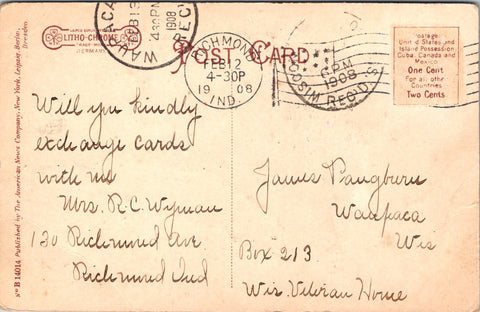 LITHO-CHROME
TRADE-MARK
GERMANY
WAUPACA
FEB 13
4 30PM
1908
REC'D
POST CARD
RICHMOND
FEB 12
4-30P
19 08
IND.
6 PM
1908
WISCONSIN REC'D
Postage
United States and
Island Possession
Cuba, Canada and
Mexico
One Cent
For all other
Countries
Two Cents
No B 14014 Published by The American News Company, New York, Leipzig, Berlin, Dresden.
Will you kindly
exchange cards
with me
Mrs. R.C. Wyman
130 Richmond Ave
Richmond Ind
James Pangburn
Waupaca
Wis
Box 213
Wis Veteran Home